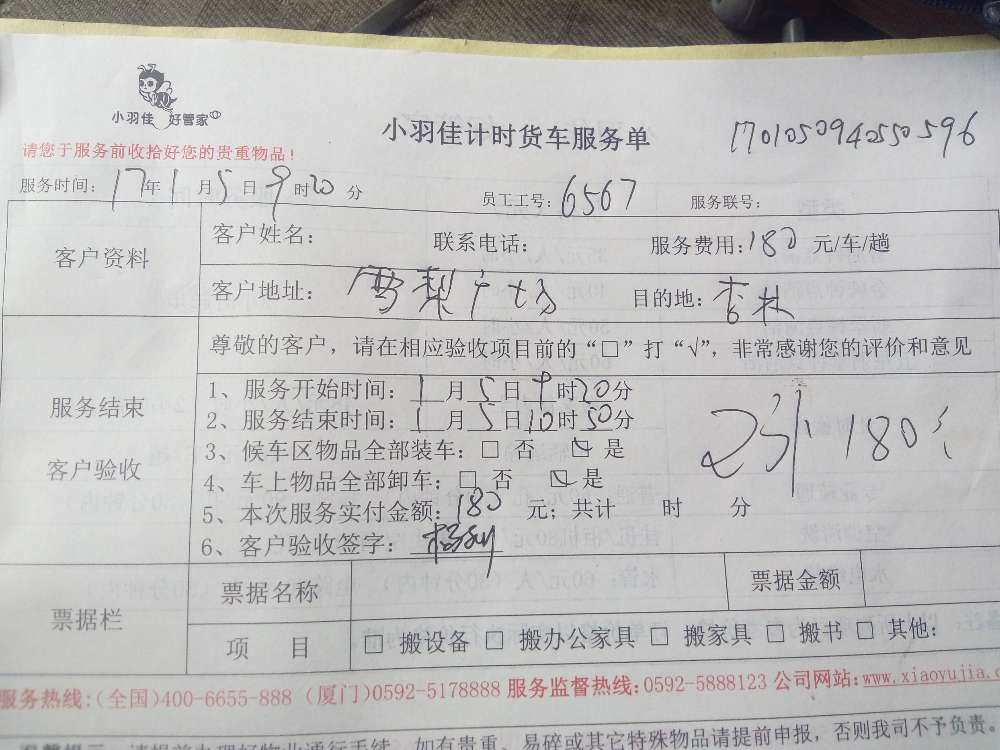 小羽佳 好管家
小羽佳计时货车服务单
170105094250596
请您于服务前收拾好您的贵重物品！
服务时间：17年1月5日9时20分 员工工号：6567 服务联号：
客户资料
客户姓名： 联系电话： 服务费用：180元/车/趟
客户地址： 目的地：杏林
尊敬的客户，请在相应验收项目前的“□”打“√”，非常感谢您的评价和意见
服务结束
客户验收
1、服务开始时间：1月5日9时20分
2、服务结束时间：1月5日10时50分
3、候车区物品全部装车：□ 否 ☑ 是
4、车上物品全部卸车：□ 否 ☑ 是
5、本次服务实付金额：180元；共计 时 分
6、客户验收签字：
180元
票据栏
票据名称 票据金额
项 目 □ 搬设备 □ 搬办公家具 □ 搬家具 □ 搬书 □ 其他：
服务热线：(全国)400-6655-888 (厦门)0592-5178888 服务监督热线：0592-5888123 公司网站：www.xiaoyujia.c
请提前办理好物业通行手续，如有贵重、易碎或其它特殊物品请提前申报，否则我司不予负责。